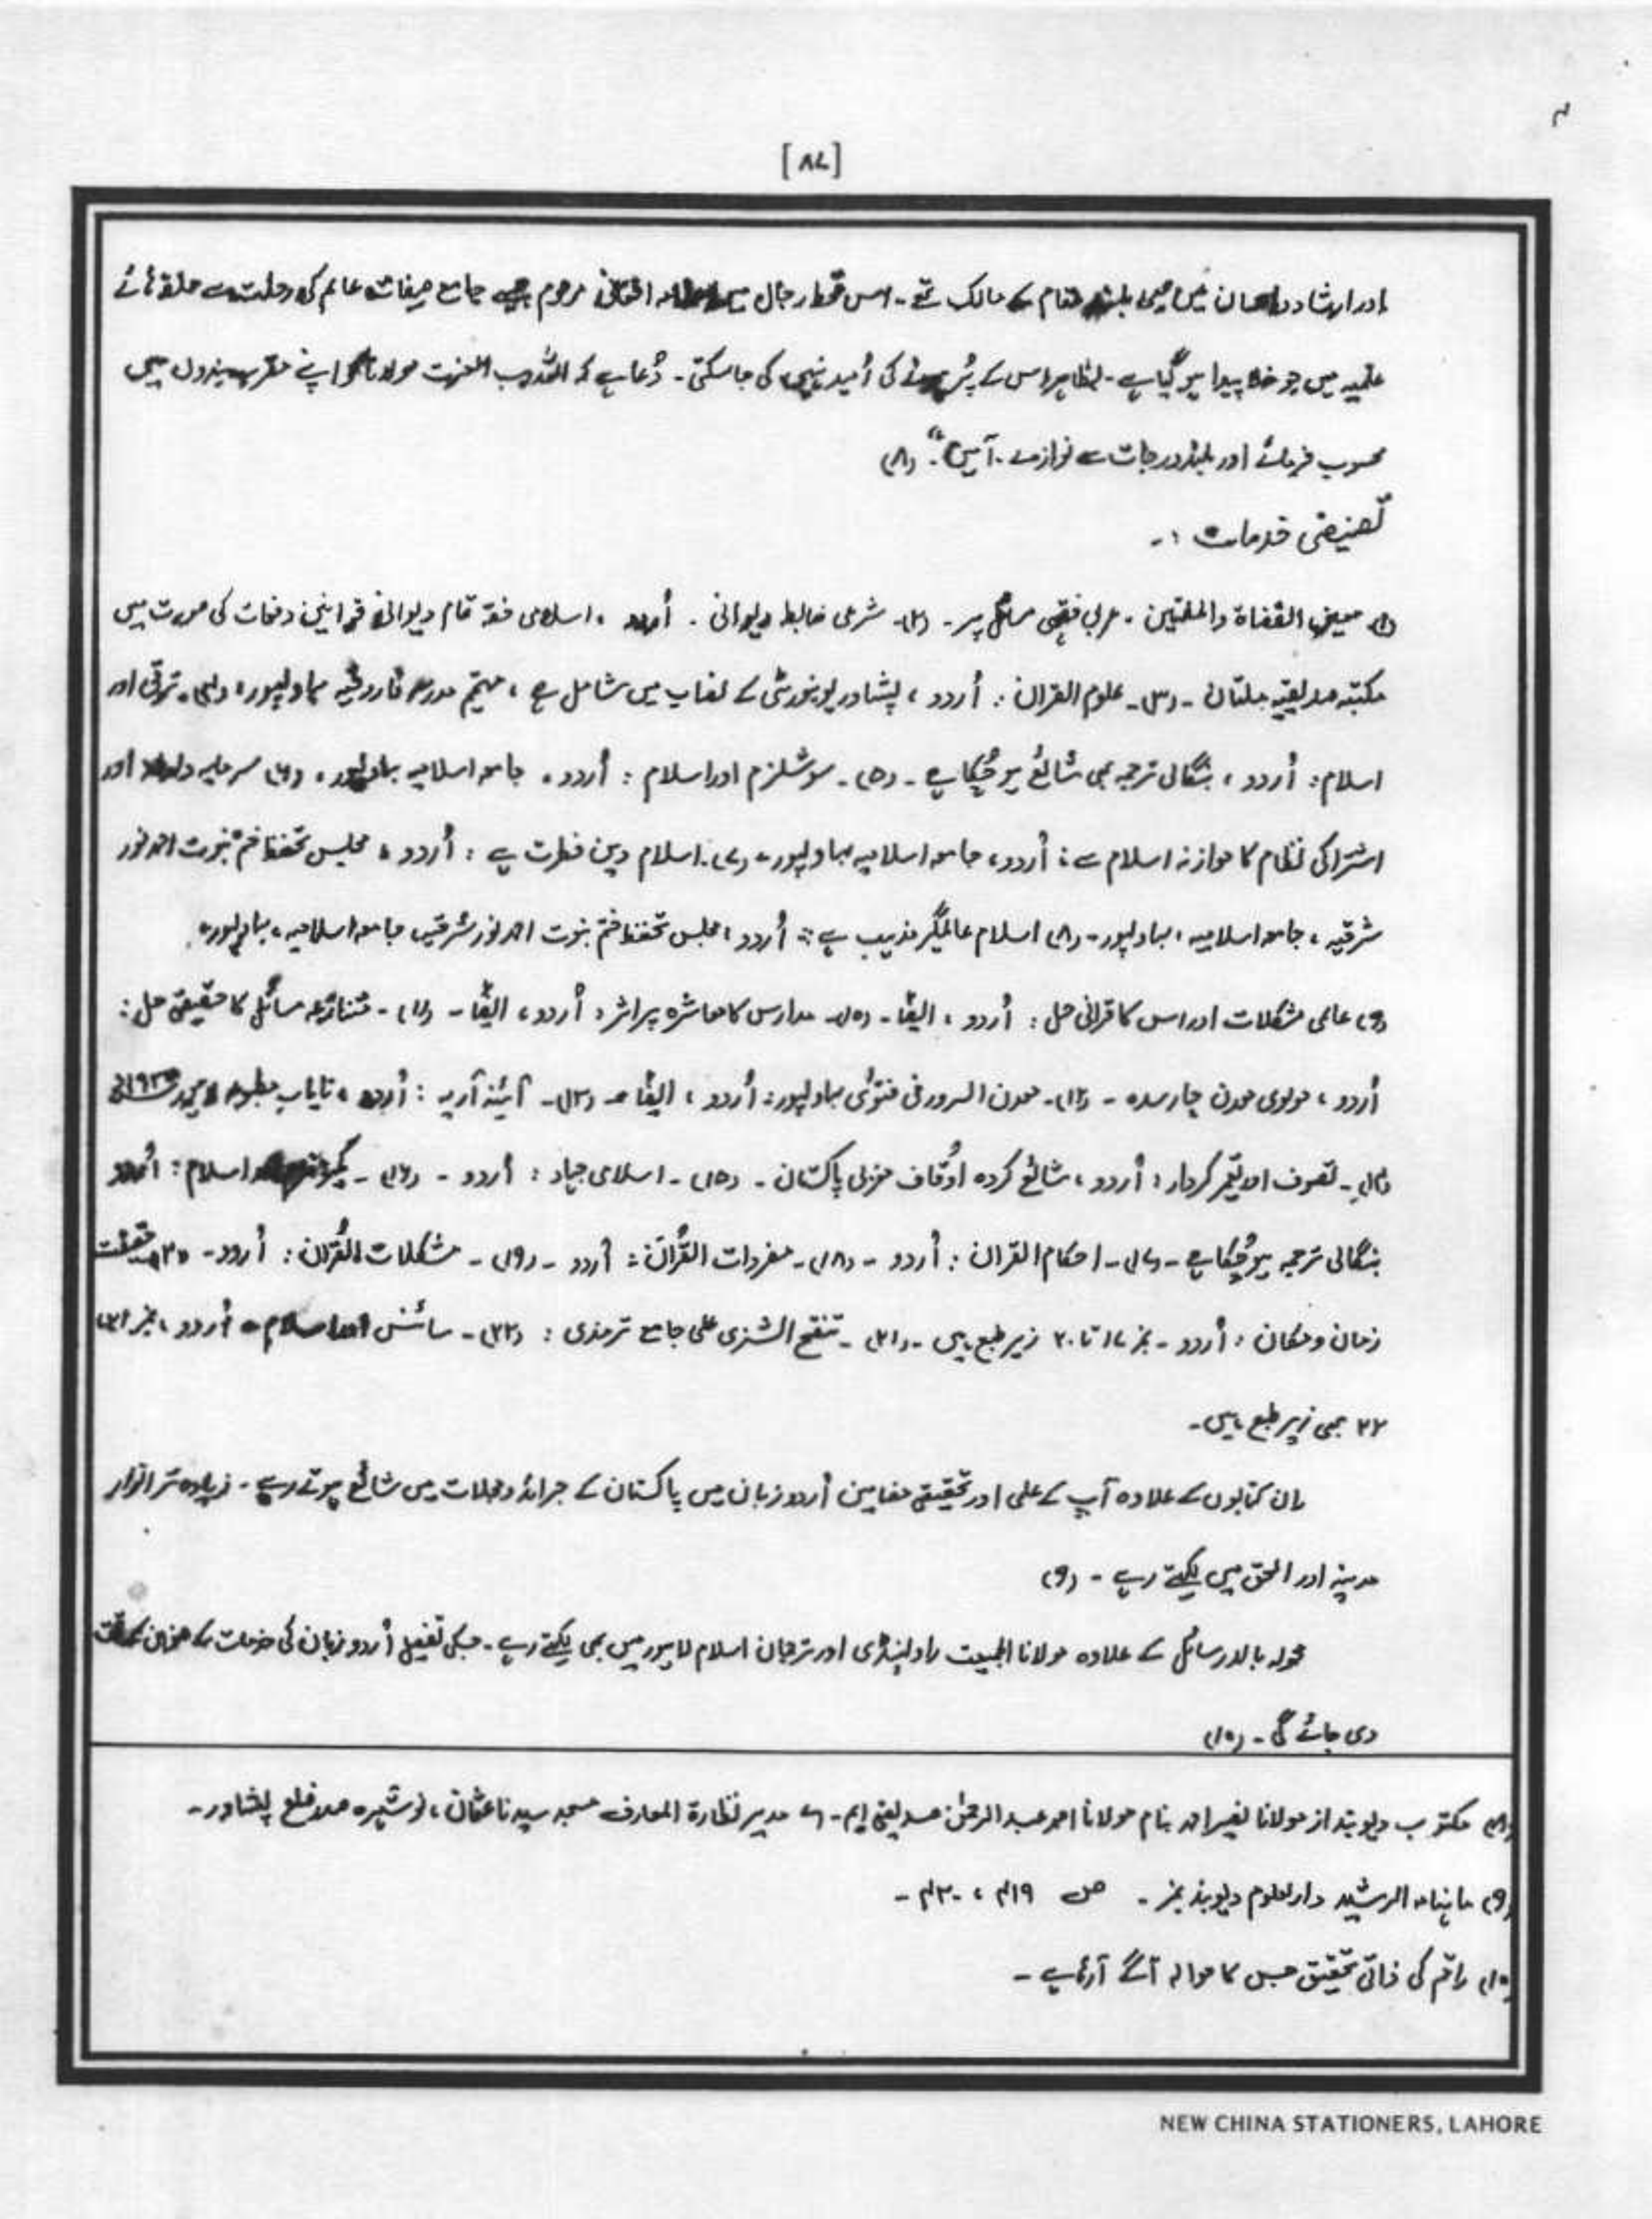 [۸۷]
اور ارشاد و احسان میں بھی بلند مقام کے مالک تھے۔ اس قحط رجال میں افغانی مرحوم جیسے جامع صفات عالم کی رحلت سے حلقہ ہائے
علمیہ میں جو خلا پیدا ہو گیا ہے۔ بظاہر اس کے پُر ہونے کی اُمید نہیں کی جا سکتی۔ دُعا ہے کہ اللہ رب العزت مولانا کو اپنے مقرب بندوں میں
محسوب فرمائے اور بلند درجات سے نوازے۔ آمین"۔ (۸)
تصنیفی خدمات :۔
(۱) معین القضاة والمفتیین۔ عربی فقہی مسائل پر۔ (۲)۔ شرعی ضابطہ دیوانی۔ اُردو ، اسلامی فقہ تمام دیوانی قوانین دفعات کی صورت میں
مکتبہ صدیقیہ ملتان۔ (۳)۔ علوم القرآن : اُردو ، پشاور یونیورسٹی کے نصاب میں شامل ہے ، مہتمم مدرسہ فاروقیہ بہاولپور، (۴)۔ ترقی اور
اسلام : اُردو ، بنگالی ترجمہ بھی شائع ہو چُکا ہے۔ (۵)۔ سوشلزم اور اسلام : اُردو ، جامعہ اسلامیہ بہاولپور ، (۶) سرمایہ دارانہ اور
اشتراکی نظام کا موازنہ اسلام سے : اُردو، جامعہ اسلامیہ بہاولپور، (۷)۔ اسلام دین فطرت ہے : اُردو ، مجلس تحفظ ختم نبوت احمد پور
شرقیہ ، جامعہ اسلامیہ ، بہاولپور۔ (۸) اسلام عالمگیر مذہب ہے : اُردو ، مجلس تحفظ ختم نبوت احمد پور شرقیہ، جامعہ اسلامیہ ، بہاولپور،
(۹) عالمی مشکلات اور اس کا قرآنی حل : اُردو ، ایضًا۔ (۱۰)۔ مدارس کا معاشرہ پر اثر : اُردو ، ایضًا۔ (۱۱)۔ متنازعہ مسائل کا حقیقی حل :
اُردو ، مولوی محمدن چارسدہ۔ (۱۲)۔ معدن السرور فی فتویٰ بہاولپور : اُردو ، ایضًا۔ (۱۳)۔ آئینہ آریہ : اُردو ، نایاب مطبوعہ
(۱۴)۔ تصوف اور تعمیر کردار : اُردو ، شائع کردہ اوقاف مغربی پاکستان۔ (۱۵)۔ اسلامی جہاد : اُردو۔ (۱۶)۔ کمیونزم اور اسلام : اُردو
بنگالی ترجمہ ہو چُکا ہے۔ (۱۷)۔ احکام القرآن : اُردو۔ (۱۸)۔ مفردات القرآن : اُردو۔ (۱۹)۔ مشکلات القرآن : اُردو۔ (۲۰) حقیقت
زمان و مکان : اُردو۔ نمبر ۱۷ تا ۲۰ زیر طبع ہیں۔ (۲۱)۔ تنقح الشذی علی جامع ترمذی : (۲۲)۔ سائنس اور اسلام۔ اُردو ، نمبر ۲۱،
۲۲ بھی زیر طبع ہیں۔
ان کتابوں کے علاوہ آپ کے علمی اور تحقیقی مضامین اُردو زبان میں پاکستان کے جرائد و مجلات میں شائع ہوتے رہے۔ زیادہ تر انوار
مدینہ اور الحق میں لکھتے رہے۔ (۹)
محولہ بالا رسائل کے علاوہ مولانا الجمیعت راولپنڈی اور ترجمان اسلام لاہور میں بھی لکھتے رہے۔ جسکی تفصیل اُردو زبان کی خدمات کے عنوان کے تحت
دی جائے گی۔ (۱۰)
(۸) مکتوب دیوبند از مولانا نصیر احمد بنام مولانا احمد عبدالرحمٰن صدیقی ایم۔ اے مدیر نظارة المعارف مسجد سیدنا عثمان ، نوشہرہ صدر ضلع پشاور۔
(۹) ماہنامہ الرشید دارالعلوم دیوبند نمبر۔ ص ۴۱۹ ، ۴۲۰۔
(۱۰) راقم کی ذاتی تحقیق جس کا حوالہ آگے آرہا ہے۔
NEW CHINA STATIONERS, LAHORE